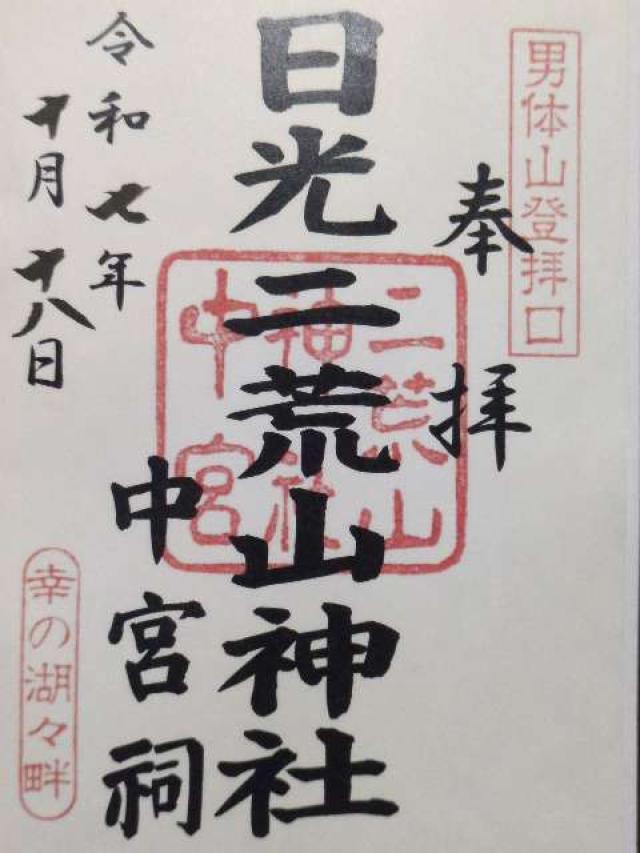 男体山登拝口
奉拝
日光二荒山神社
中宮祠
二荒山
神社
中宮
令和七年
十月十八日
幸の湖々畔